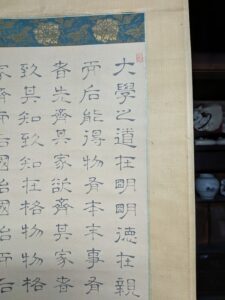 大學之道在明明德在親
而后能得物有本末事有
者先齊其家欲齊其家者
致其知致知在格物物格